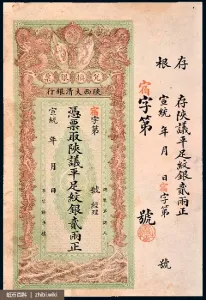 存根
宿字第 號
宣統 年 月 日
存陝議平足紋銀貳兩正
宿字第 號
陝西大清銀行
宿字第 號
憑票取陝議平足紋銀貳兩正
宣統 年 月 日
經理
zhibi.wiki